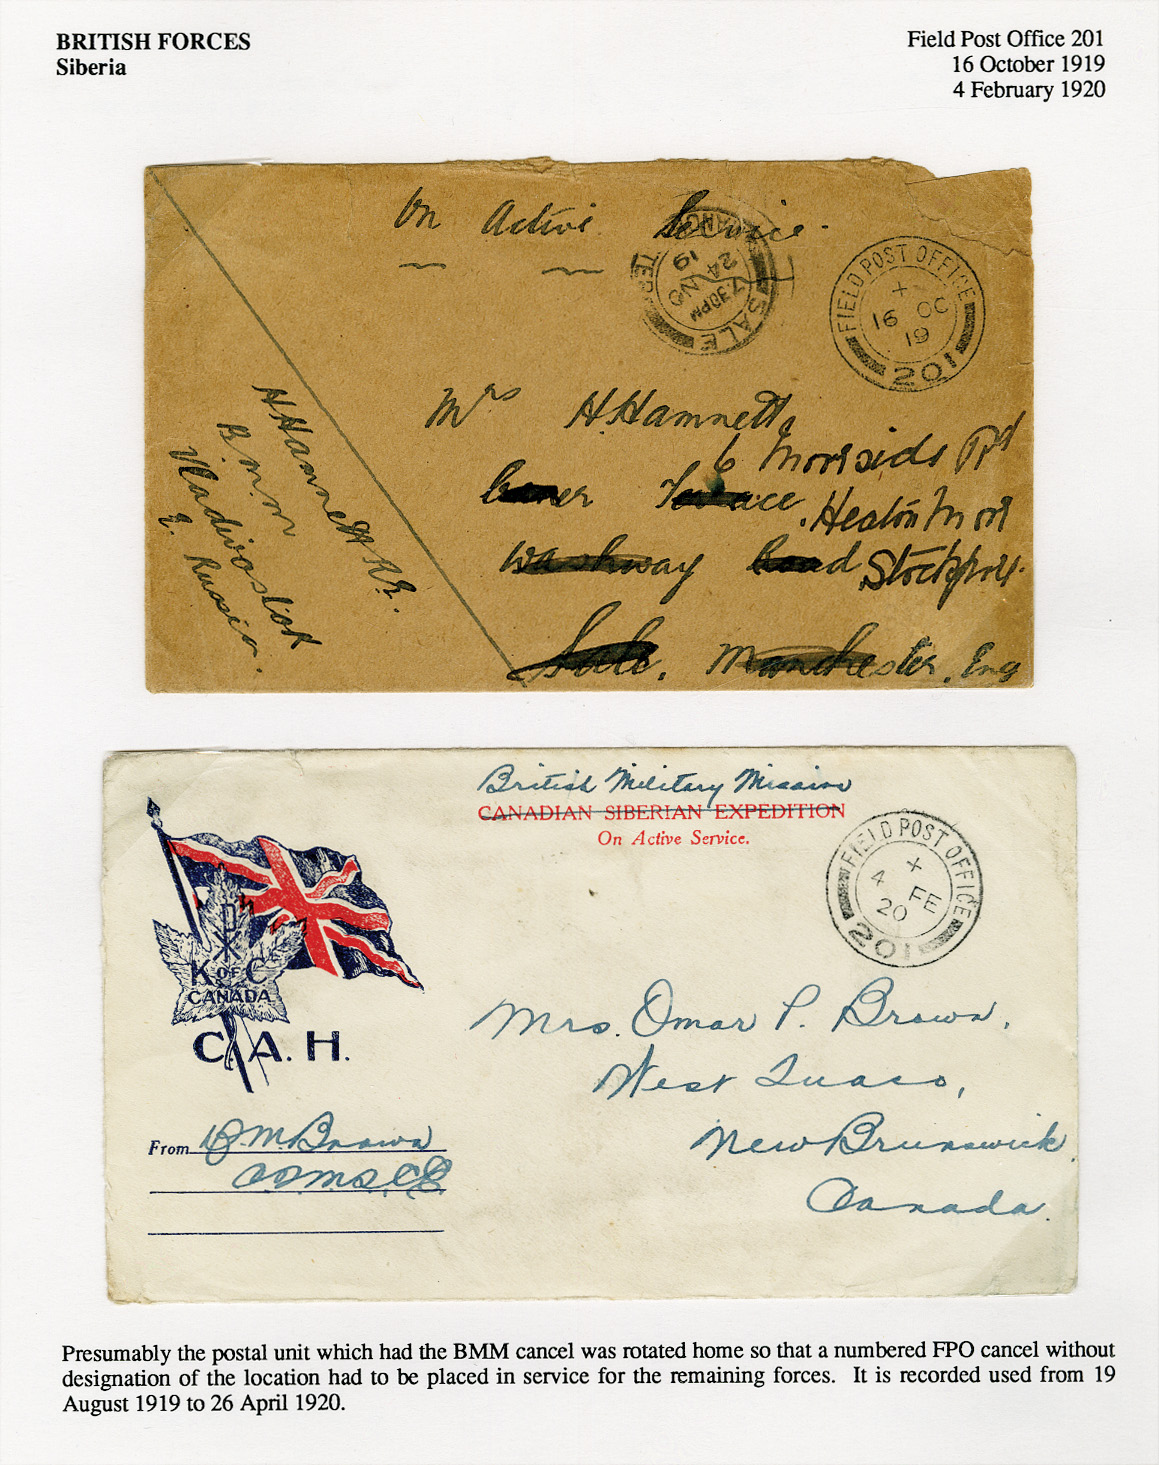 BRITISH FORCES
Siberia
Field Post Office 201
16 October 1919
4 February 1920
On Active Service.
SALE
7.30PM
24 NO
19
FIELD POST OFFICE
+
16 OC
19
201
Mrs H. Hamnett
6 Moorside Rd
Terrace, Heaton Moor
Washway Road Stockport.
Sale, Manchester, Eng
H Hamnett R.E.
B.M.M
Vladivostok
E. Russia.
British Military Mission
CANADIAN SIBERIAN EXPEDITION
On Active Service.
FIELD POST OFFICE
+
4 FE
20
201
K OF C
CANADA
C. A. H.
Mrs. Omar P. Brown,
West Quaco,
New Brunswick,
Canada.
From M. Brown
Presumably the postal unit which had the BMM cancel was rotated home so that a numbered FPO cancel without
designation of the location had to be placed in service for the remaining forces. It is recorded used from 19
August 1919 to 26 April 1920.